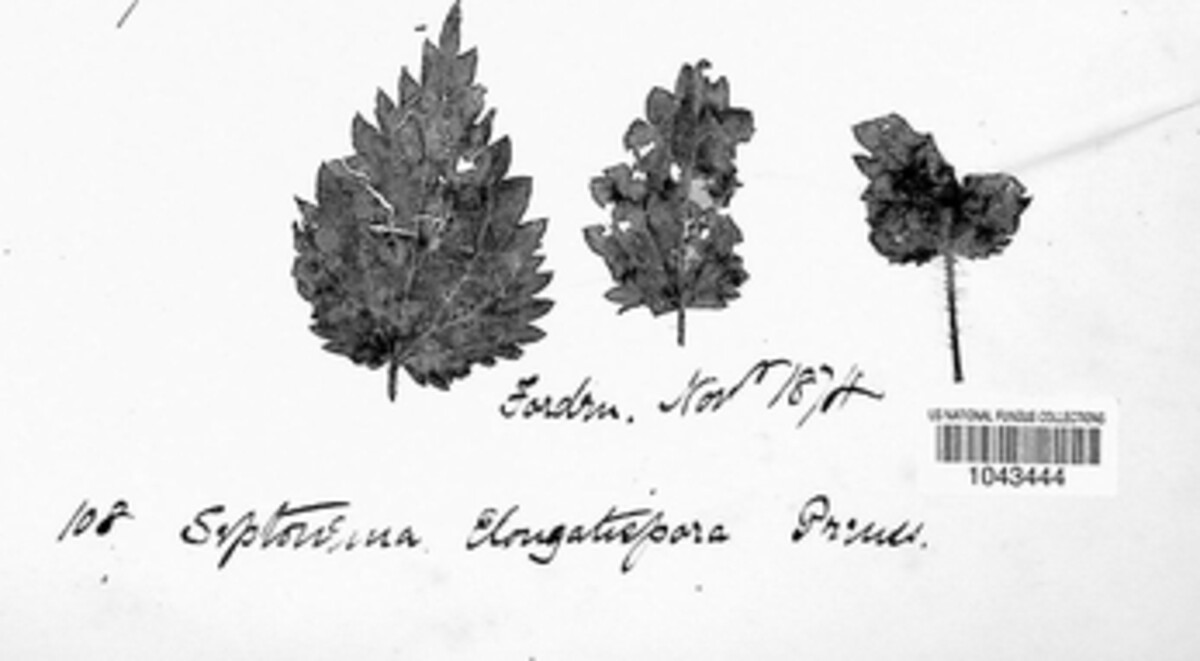 Fordon. Novr 1874
US NATIONAL FUNGUS COLLECTIONS
1043444
108 Septonema Elongatispora Preuss.